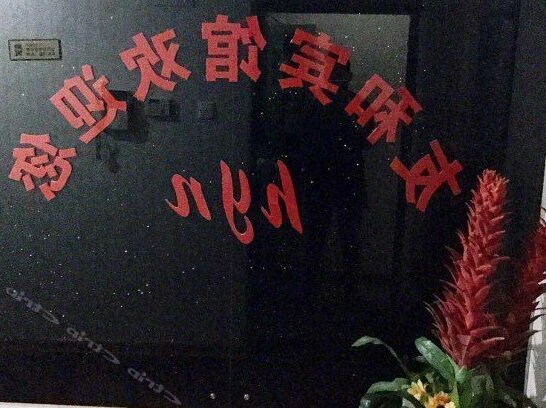 友和宾馆欢迎您
hyn
Ctrip Ctrip Ctrip